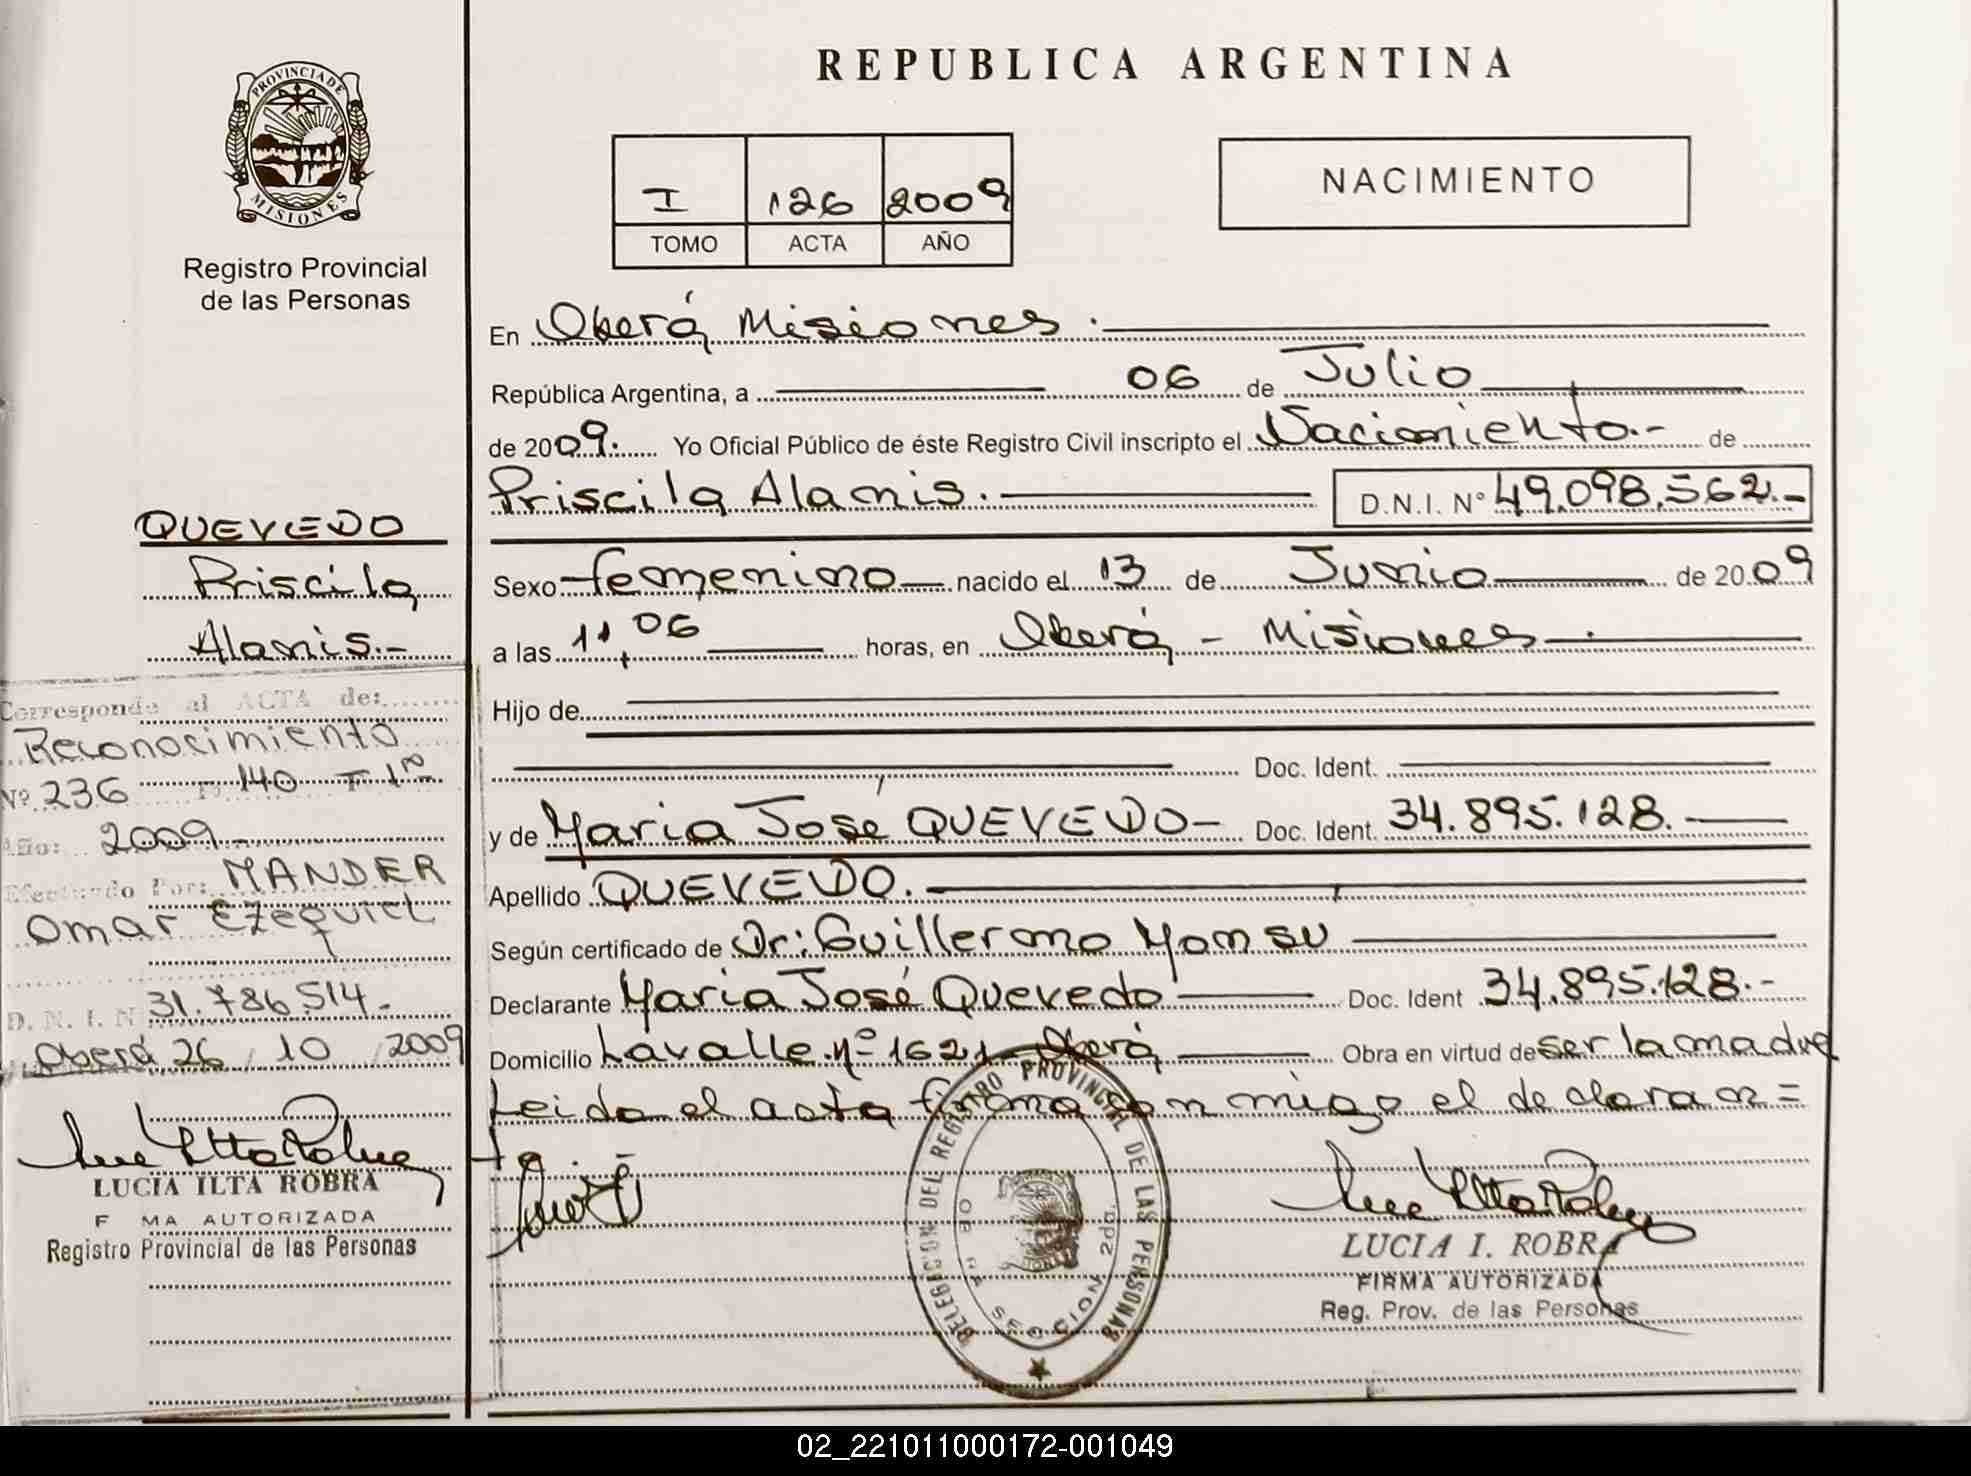 PROVINCIA DE
MISIONES
Registro Provincial
de las Personas
QUEVEDO
Priscila
Alanis.-
Corresponde al ACTA de:
Reconocimiento
Nº 236 Fº 140 T 1º
Año: 2009.-
Efectuado Por: MANDER
Omar Ezequiel
D. N. I. N 31.786.514.-
Oberá 26 / 10 / 2009
LUCIA ILTA ROBRA
F MA AUTORIZADA
Registro Provincial de las Personas
REPUBLICA ARGENTINA
I 126 2009
TOMO ACTA AÑO
NACIMIENTO
En Oberá Misiones.
República Argentina, a 06 de Julio
de 2009. Yo Oficial Público de éste Registro Civil inscripto el Nacimiento.- de
Priscila Alanis. D.N.I. Nº 49.098.562.-
Sexo femenino nacido el 13 de Junio de 2009
a las 11,06 horas, en Oberá - Misiones
Hijo de
Doc. Ident.
y de Maria José QUEVEDO- Doc. Ident. 34.895.128.
Apellido QUEVEDO.
Según certificado de Dr: Guillermo
Declarante Maria José Quevedo Doc. Ident 34.895.128.-
Domicilio Lavalle nº 1621 Oberá Obra en virtud de ser la madre
Leido el acta firma con migo el declaran=
te.-
DELEGACION DEL REGISTRO PROVINCIAL DE LAS PERSONAS
SECCION 2da.
LUCIA I. ROBRA
FIRMA AUTORIZADA
Reg. Prov. de las Personas
02_221011000172-001049